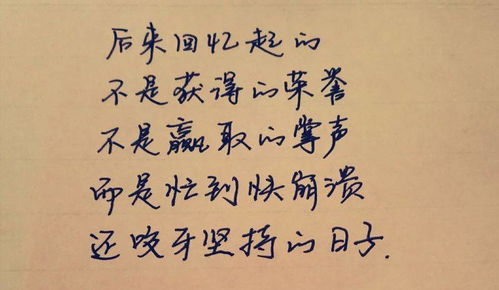 后来回忆起的
不是获得的荣誉
不是赢取的掌声
而是忙到快崩溃
还咬牙坚持的日子.